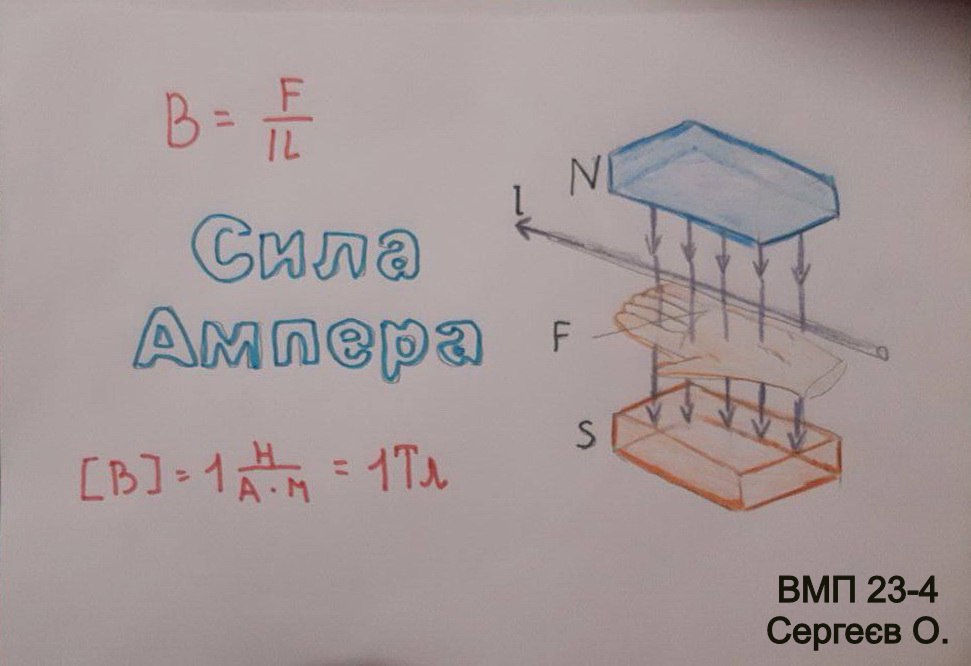 B = F/IL
Сила
Ампера
[B] = 1 Н/А·м = 1Тл
N
I
F
S
ВМП 23-4
Сергеєв О.